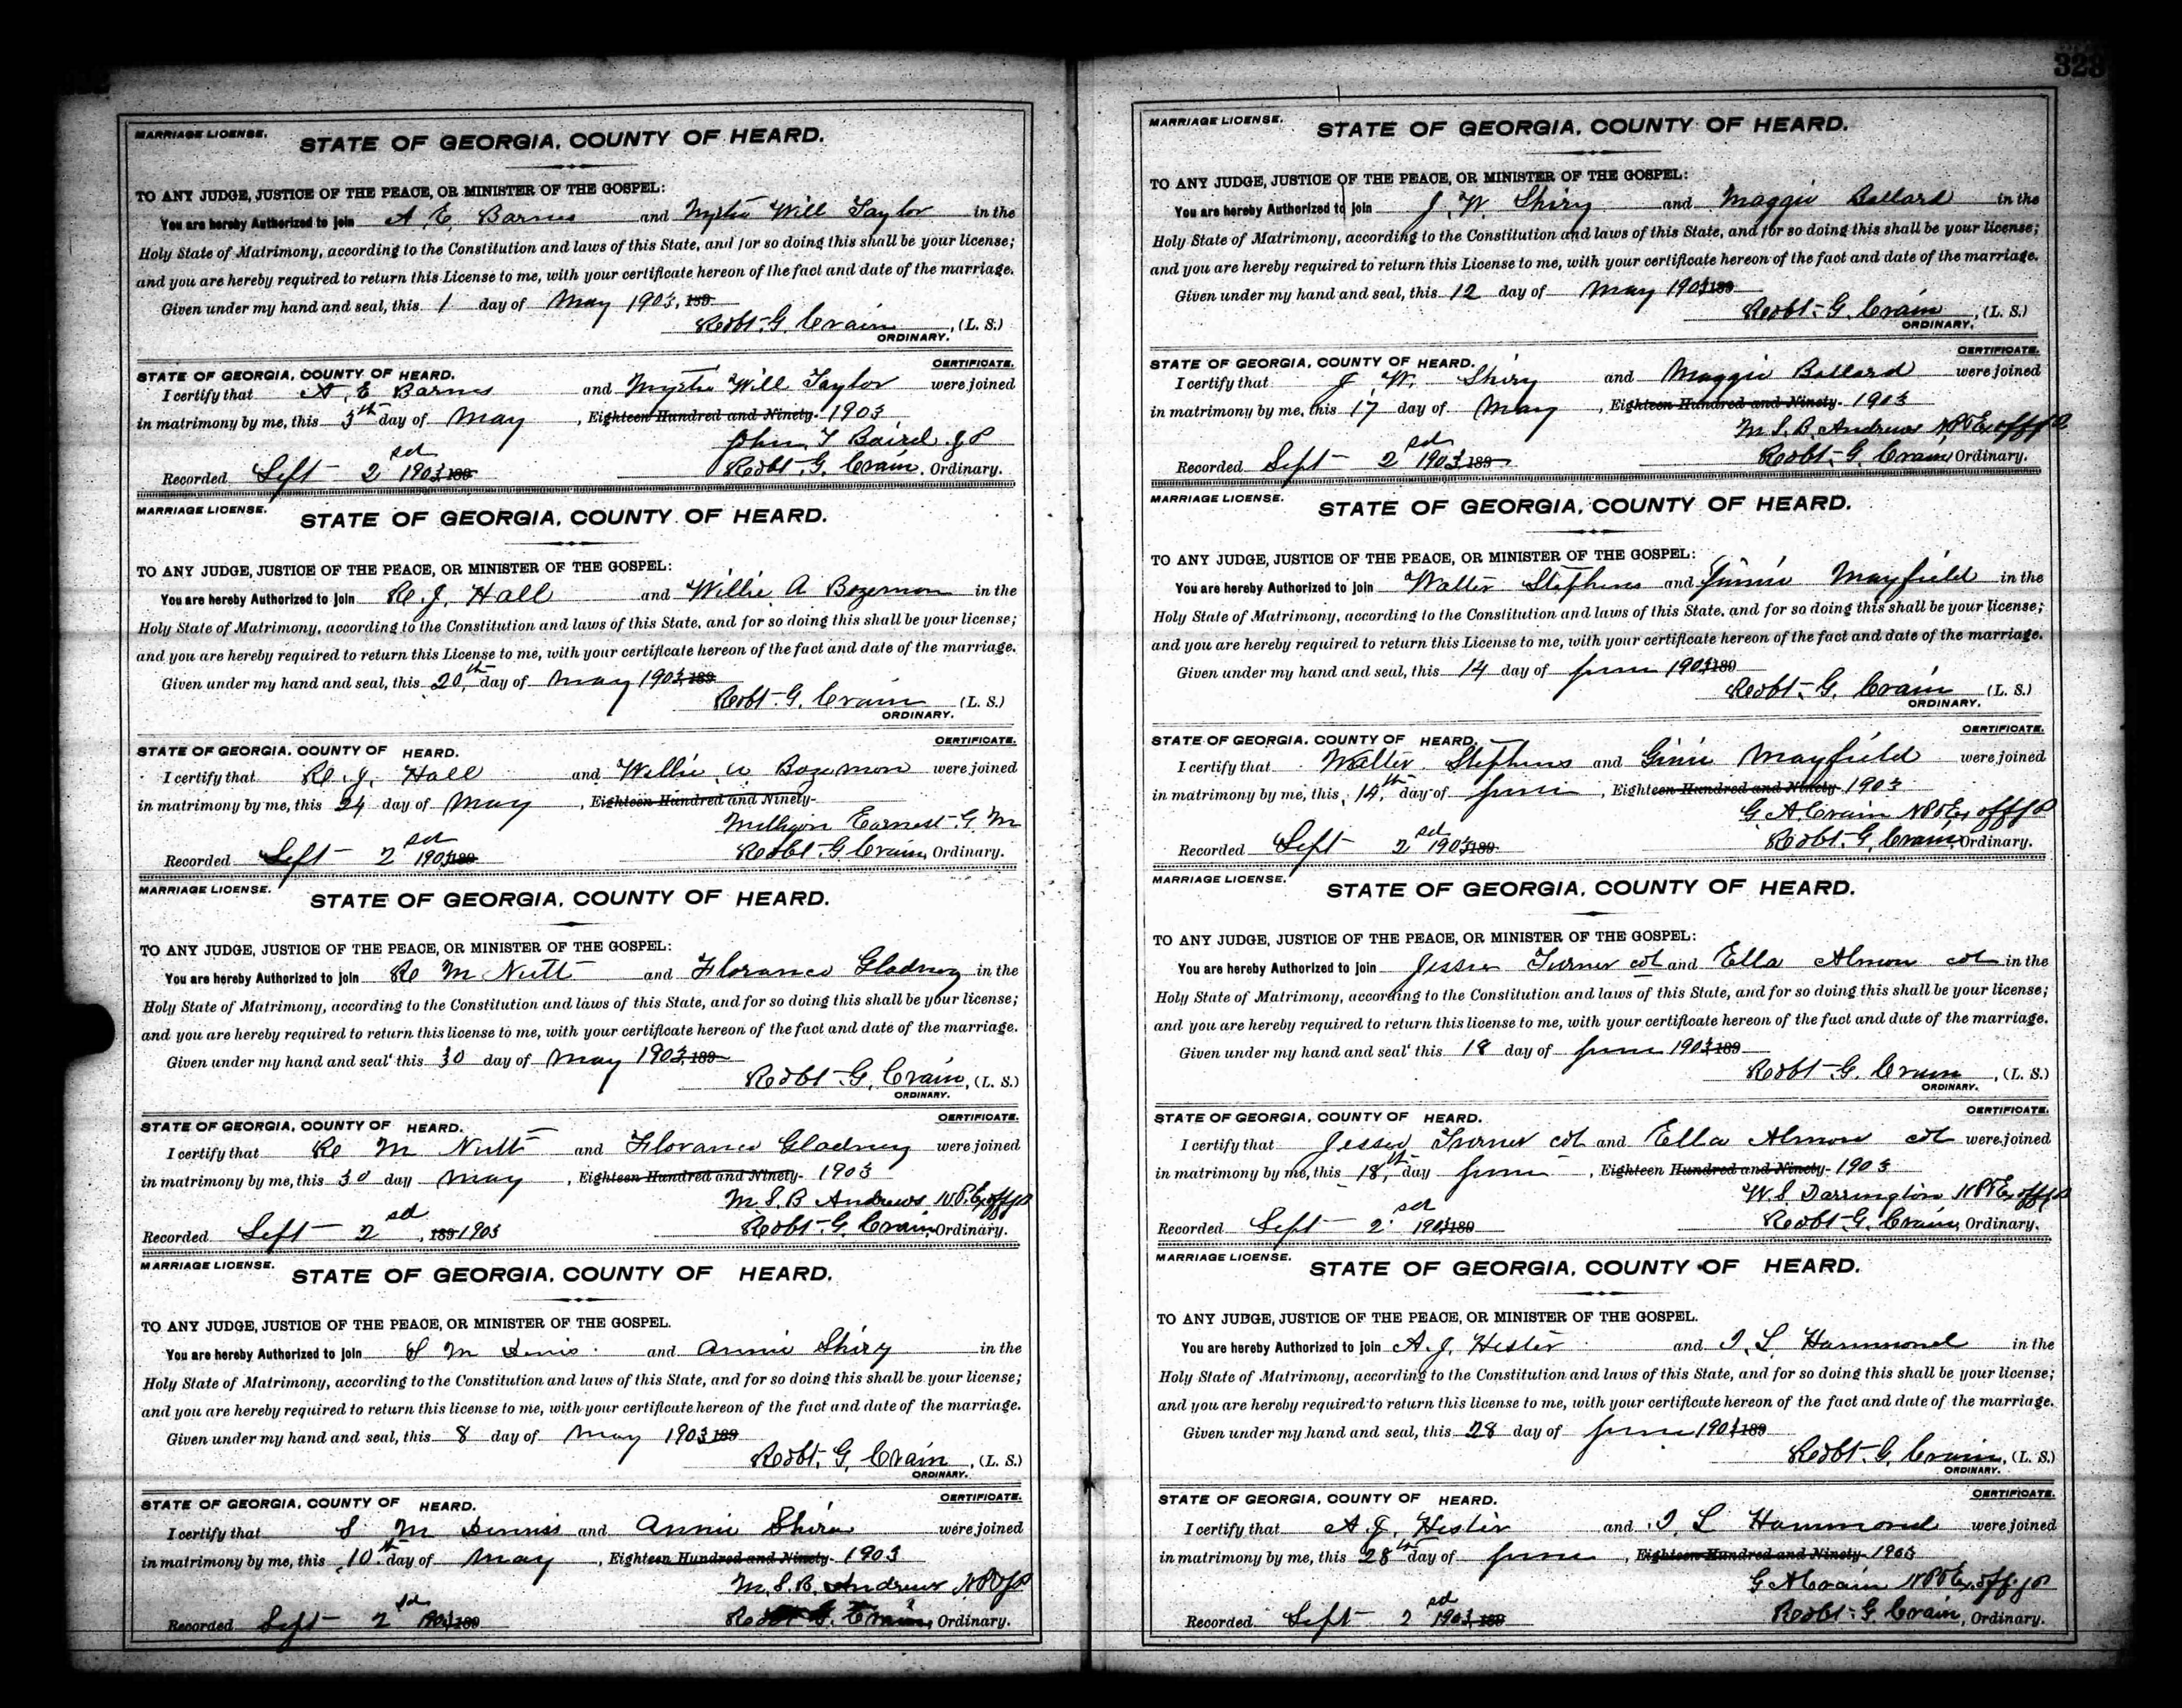 MARRIAGE LICENSE.
STATE OF GEORGIA, COUNTY OF HEARD.
TO ANY JUDGE, JUSTICE OF THE PEACE, OR MINISTER OF THE GOSPEL:
You are hereby Authorized to join A. E. Barnes and Myrtie Will Taylor in the
Holy State of Matrimony, according to the Constitution and laws of this State, and for so doing this shall be your license;
and you are hereby required to return this License to me, with your certificate hereon of the fact and date of the marriage.
Given under my hand and seal, this 1 day of May 1903, 189
Robt. G. Crain, (L. S.)
ORDINARY.
CERTIFICATE.
STATE OF GEORGIA, COUNTY OF HEARD.
I certify that A. E Barnes and Myrtie Will Taylor were joined
in matrimony by me, this 3th day of May, Eighteen Hundred and Ninety- 1903
John T Baird J P
Recorded Sept 2nd 1903 189 Robt. G. Crain, Ordinary.
MARRIAGE LICENSE.
STATE OF GEORGIA, COUNTY OF HEARD.
TO ANY JUDGE, JUSTICE OF THE PEACE, OR MINISTER OF THE GOSPEL:
You are hereby Authorized to join R. J. Hall and Willie A Bozemon in the
Holy State of Matrimony, according to the Constitution and laws of this State, and for so doing this shall be your license;
and you are hereby required to return this License to me, with your certificate hereon of the fact and date of the marriage.
Given under my hand and seal, this 20th day of May 1903, 189
Robt. G. Crain (L. S.)
ORDINARY.
CERTIFICATE.
STATE OF GEORGIA, COUNTY OF HEARD.
I certify that R. J. Hall and Willie A Bozemon were joined
in matrimony by me, this 24 day of May, Eighteen Hundred and Ninety-
Earnest G M
Recorded Sept 2nd 1903 189 Robt. G Crain, Ordinary.
MARRIAGE LICENSE.
STATE OF GEORGIA, COUNTY OF HEARD.
TO ANY JUDGE, JUSTICE OF THE PEACE, OR MINISTER OF THE GOSPEL:
You are hereby Authorized to join R M Nutt and Florance Gladney in the
Holy State of Matrimony, according to the Constitution and laws of this State, and for so doing this shall be your license;
and you are hereby required to return this license to me, with your certificate hereon of the fact and date of the marriage.
Given under my hand and seal this 30 day of May 1903, 189
Robt. G. Crain, (L. S.)
ORDINARY.
CERTIFICATE.
STATE OF GEORGIA, COUNTY OF HEARD.
I certify that R M Nutt and Florance Gladney were joined
in matrimony by me, this 30 day May, Eighteen Hundred and Ninety- 1903
M. S. B Andrews N.P. Ex off J P
Recorded Sept 2nd, 189 1903 Robt. G. Crain, Ordinary.
MARRIAGE LICENSE.
STATE OF GEORGIA, COUNTY OF HEARD.
TO ANY JUDGE, JUSTICE OF THE PEACE, OR MINISTER OF THE GOSPEL.
You are hereby Authorized to join S M Dinis and Annie Shiry in the
Holy State of Matrimony, according to the Constitution and laws of this State, and for so doing this shall be your license;
and you are hereby required to return this license to me, with your certificate hereon of the fact and date of the marriage.
Given under my hand and seal, this 8 day of May 1903 189
Robt. G. Crain, (L. S.)
ORDINARY.
CERTIFICATE.
STATE OF GEORGIA, COUNTY OF HEARD.
I certify that S M Dinniss and Annie were joined
in matrimony by me, this 10th day of May, Eighteen Hundred and Ninety- 1903
M. S. B. Andrews
Recorded Sept 2nd 1903 189 Robt G. Crain, Ordinary.
328
MARRIAGE LICENSE.
STATE OF GEORGIA, COUNTY OF HEARD.
TO ANY JUDGE, JUSTICE OF THE PEACE, OR MINISTER OF THE GOSPEL:
You are hereby Authorized to join J. W. Shiry and Maggie Ballard in the
Holy State of Matrimony, according to the Constitution and laws of this State, and for so doing this shall be your license;
and you are hereby required to return this License to me, with your certificate hereon of the fact and date of the marriage.
Given under my hand and seal, this 12 day of May 1903 189
Robt. G. Crain, (L. S.)
ORDINARY.
CERTIFICATE.
STATE OF GEORGIA, COUNTY OF HEARD.
I certify that J. W. Shiry and Maggie Ballard were joined
in matrimony by me, this 17 day of May, Eighteen Hundred and Ninety- 1903
M. S. B. Andrews N P & Ex off J P
Recorded Sept 2nd 1903 189 Robt. G. Crain, Ordinary.
MARRIAGE LICENSE.
STATE OF GEORGIA, COUNTY OF HEARD.
TO ANY JUDGE, JUSTICE OF THE PEACE, OR MINISTER OF THE GOSPEL:
You are hereby Authorized to join Walter Stephens and Jinnie Mayfield in the
Holy State of Matrimony, according to the Constitution and laws of this State, and for so doing this shall be your license;
and you are hereby required to return this License to me, with your certificate hereon of the fact and date of the marriage.
Given under my hand and seal, this 14 day of June 1903 189
Robt. G. Crain (L. S.)
ORDINARY.
CERTIFICATE.
STATE OF GEORGIA, COUNTY OF HEARD.
I certify that Walter Stephens and Ginie Mayfield were joined
in matrimony by me, this 14th day of June, Eighteen Hundred and Ninety- 1903
G A Crain N P & Ex off J P
Recorded Sept 2nd 1903 189 Robt. G. Crain, Ordinary.
MARRIAGE LICENSE.
STATE OF GEORGIA, COUNTY OF HEARD.
TO ANY JUDGE, JUSTICE OF THE PEACE, OR MINISTER OF THE GOSPEL:
You are hereby Authorized to join Jessie Turner col and Ella Almon col in the
Holy State of Matrimony, according to the Constitution and laws of this State, and for so doing this shall be your license;
and you are hereby required to return this license to me, with your certificate hereon of the fact and date of the marriage.
Given under my hand and seal this 18 day of June 1903 189
Robt. G. Crain, (L. S.)
ORDINARY.
CERTIFICATE.
STATE OF GEORGIA, COUNTY OF HEARD.
I certify that Jessie Turner col and Ella Almon col were joined
in matrimony by me, this 18th day June, Eighteen Hundred and Ninety- 1903
W. S Darrington N P & Ex off J P
Recorded Sept 2nd 1903 189 Robt. G. Crain, Ordinary.
MARRIAGE LICENSE.
STATE OF GEORGIA, COUNTY OF HEARD.
TO ANY JUDGE, JUSTICE OF THE PEACE, OR MINISTER OF THE GOSPEL.
You are hereby Authorized to join A. J. Hester and I. L. Hammond in the
Holy State of Matrimony, according to the Constitution and laws of this State, and for so doing this shall be your license;
and you are hereby required to return this license to me, with your certificate hereon of the fact and date of the marriage.
Given under my hand and seal, this 28 day of June 1903 189
Robt. G. Crain, (L. S.)
ORDINARY.
CERTIFICATE.
STATE OF GEORGIA, COUNTY OF HEARD.
I certify that A. J. Hester and I. L Hammond were joined
in matrimony by me, this 28th day of June, Eighteen Hundred and Ninety- 1903
G A Crain N P & Ex off J P
Recorded Sept 2nd 1903, 189 Robt. G. Crain, Ordinary.